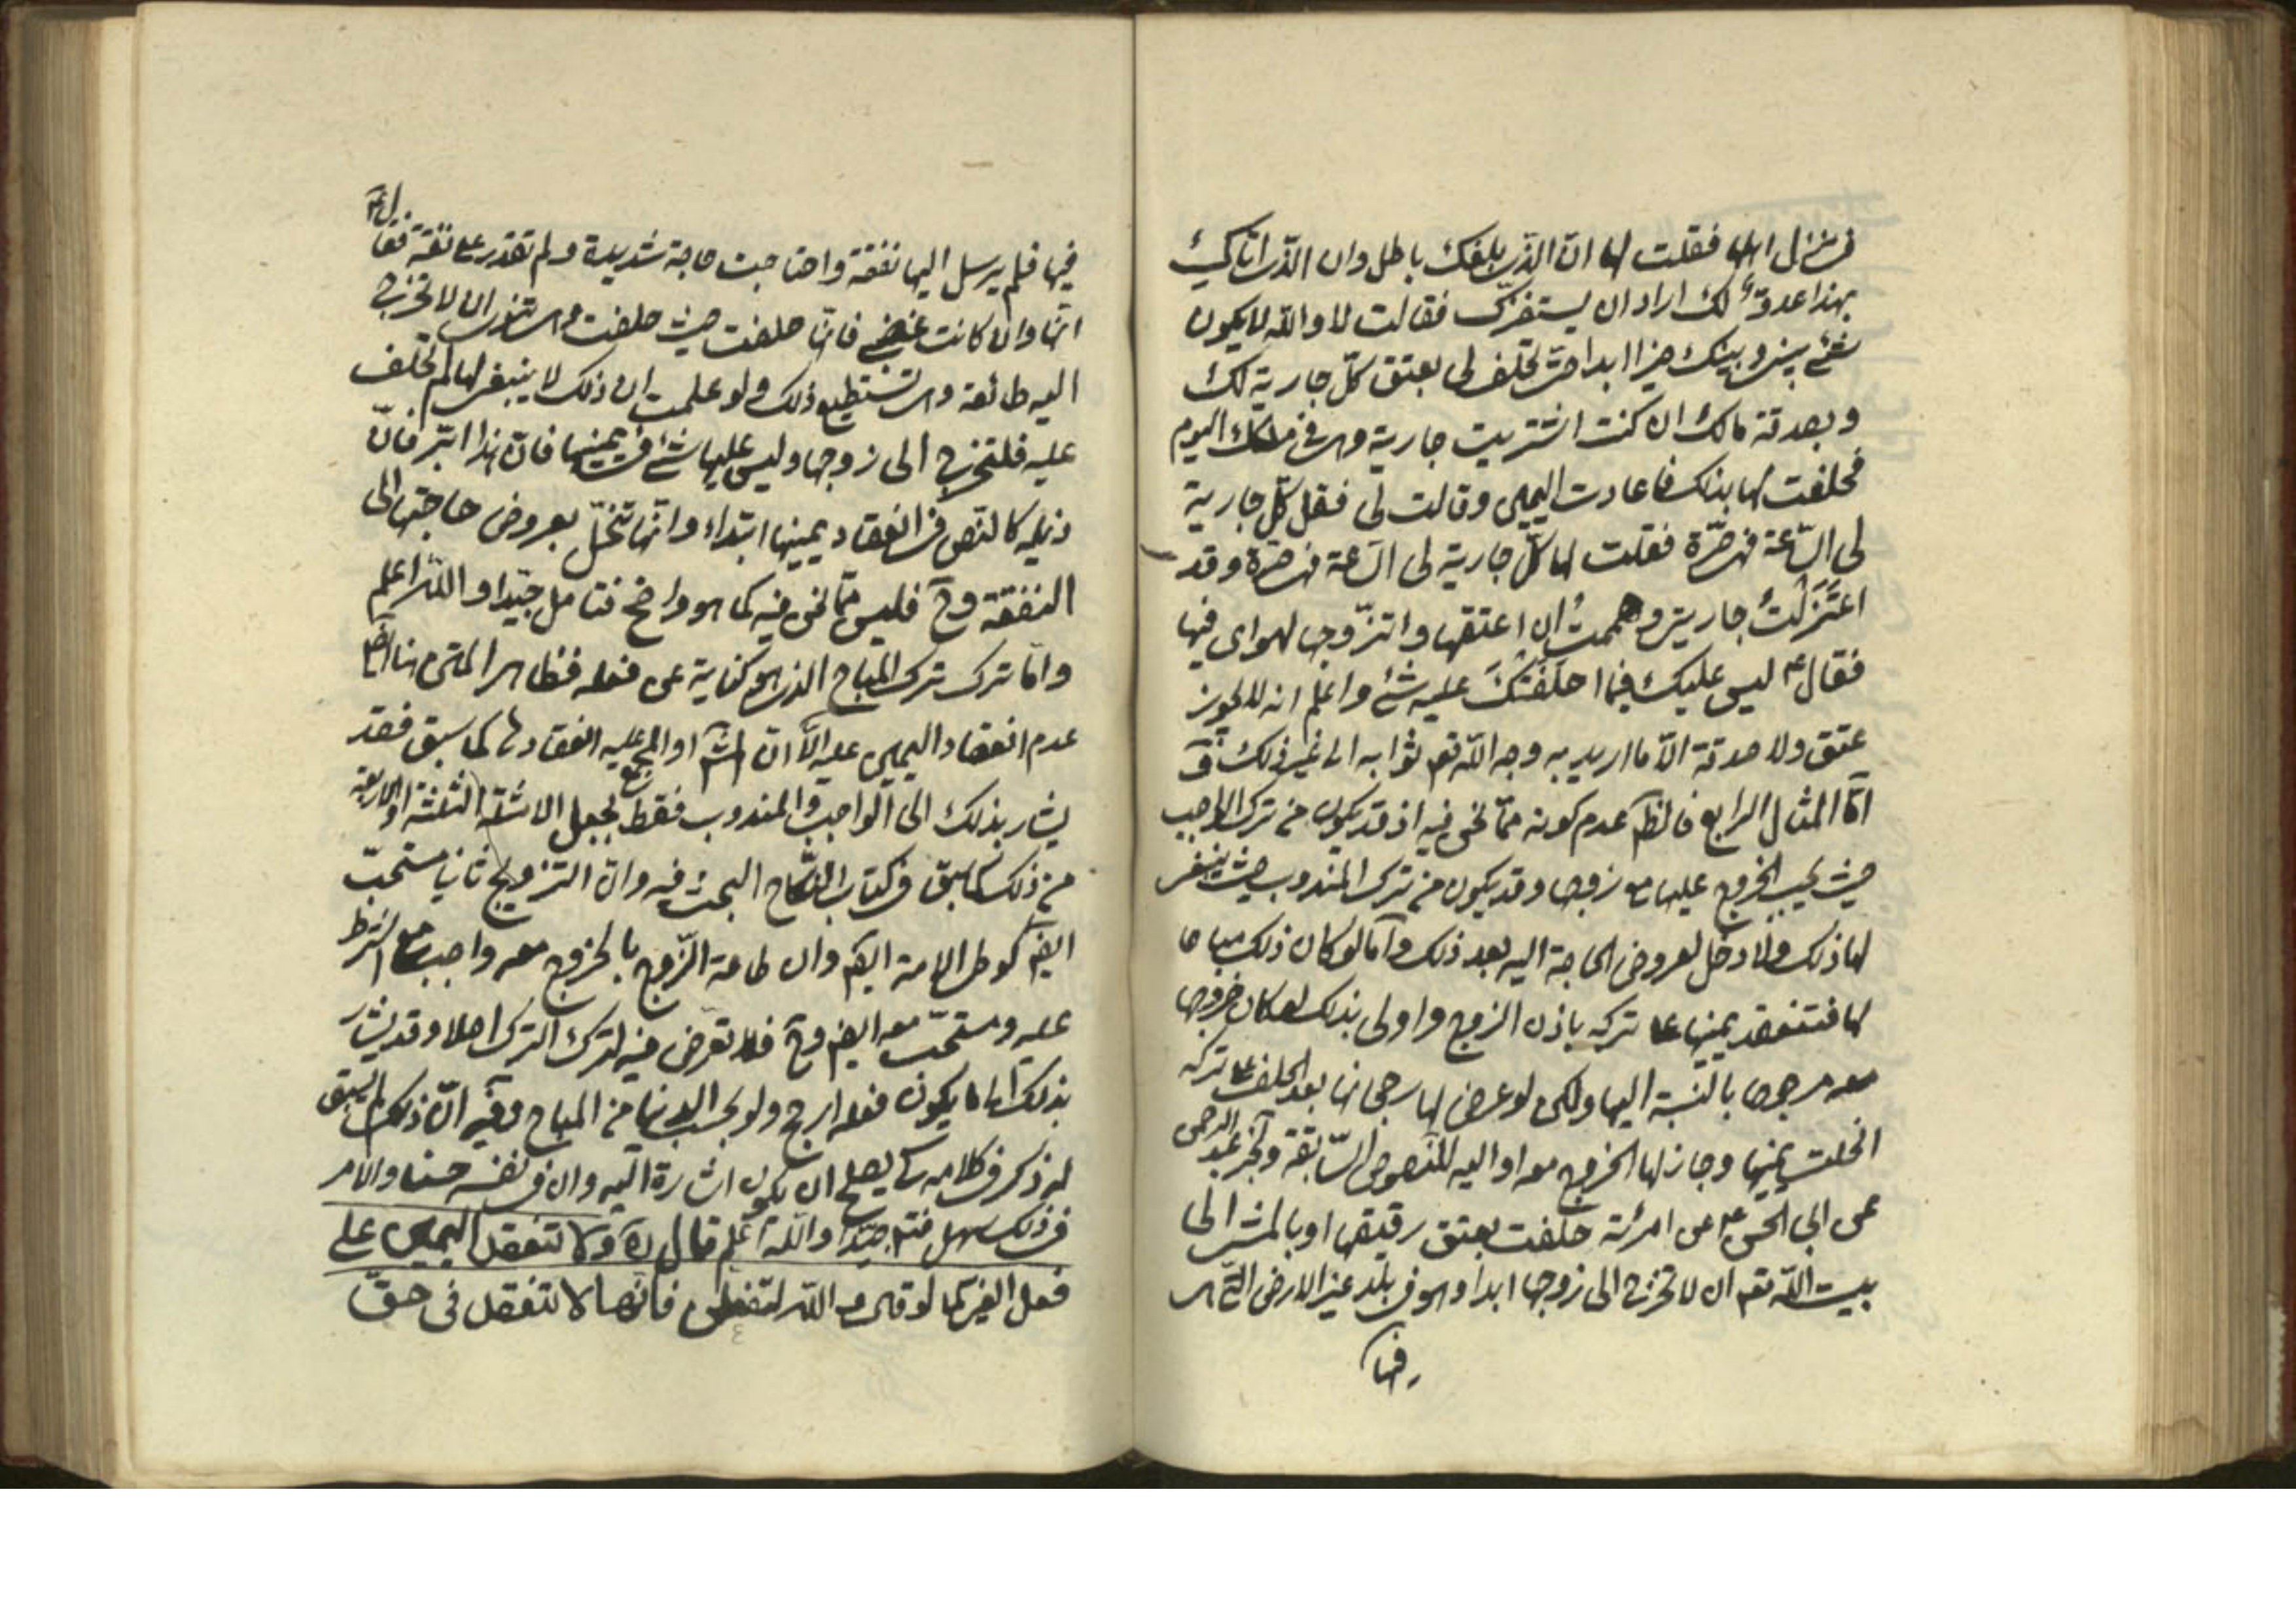 في منزل اهلها فقلت لها ان الذي بلغك باطل وان الذي اتاك
بهذا عدوّ لك اراد ان يستفزك فقالت لا والله لا يكون
بيني وبينك خيرا ابدا حتى تحلف لي بعتق كلّ جارية لك
وبصدقة مالك ان كنت اشتريت جارية وهي في ملكك اليوم
فحلفت لها بذلك فاعادت اليمين وقالت لي فقل كلّ جارية
لي السّاعة فهي حرّة فقلت لها كلّ جارية لي السّاعة فهي حرّة وقد
اعتزلت جاريتي وهممت ان اعتقها واتزوّجها لهواى فيها
فقال ع ليس عليك فيما احلفتك عليه شئ واعلم انه لا يجوز
عتق ولا صدقة الّا ما اريد به وجه الله تعـ وثوابه الى غير ذلك
امّا المثال الرابع فالظـ عدم كونه ممّا نحن فيه اذ قد يكون من ترك الواجب
حيث يجب الخروج عليها مع زوجها وقد يكون من ترك المندوب حيث ينبغي
لها ذلك ولا دخل لعروض الحاجة اليه بعد ذلك وامّا لو كان ذلك مباحا
لها فتنعقد يمينها على تركه باذن الزوج واولى بذلك لو كان خروجها
معه مرجوحا بالنسبة اليها ولكن لو عرض لها رجحانها بعد الحلف على تركه
انحلت يمينها وجاز لها الخروج معه او اليه للنصوص السّابقة وخبر عبد الرحمن
عن ابي الحسن ع عن امرئة حلفت بعتق رقيقها او بالمشي الى
بيت الله تعـ ان لا تخرج الى زوجها ابدا وهو في بلد غير الارض التي هي
فيها
فيها فلم يرسل اليها نفقة واحتاجت حاجة شديدة ولم تقدر على نفقة فقال ع
انّها وان كانت غضبى فانّها حلفت حيث حلفت وهي تنوى ان لا تخرج
اليه طائعة وهي تستطيع ذلك ولو علمت ان ذلك لا ينبغي لها لم تحلف
عليه فلتخرج الى زوجها وليس عليها شئ في يمينها فانّ هذا ابرّ فانّ
ذيله كالنّص في انعقاد يمينها ابتداء وانّها تنحلّ بعروض حاجتها الى
النفقة وح فليس ممّا نحن فيه كما هو واضح فتامل جيّدا والله اعلم
وامّا ترك ترك المباح الذي هو كناية عن فعله فظاهر المتن هنا
عدم انعقاد اليمين عليه الّا ان او المجمع عليه انعقادها كما سبق فقد
يشار بذلك الى الواجب والمندوب فقط بجعل الامثلة الثلثة او الاربعة
من ذلك كما سبق في كتاب النكاح البحث فيه وان التزويج ثانيا مستحبّ
ايضـ كوطى الامة ايضـ وان طاعة الزّوج بالخروج معه واجب مع الشرط
عليه ومستحبّ معه ايضـ وح فلا تعرّض فيه لترك الترك اصلا وقد يشار
بذلك الى ما يكون فعله ارجح ولو بحسب الدنيا من المباح وفيه انّ ذلك لم يسبق
له ذكر في كلامه كى يصلح ان يكون اشارة اليه وان في نفسه حسنا والامر
في ذلك سهل فتـ جيّدا والله اعلم قال ره ولا تنعقد اليمين على
فعل الغير كما لو قال والله لتفعلن فانّها لا تنعقد في حقّ